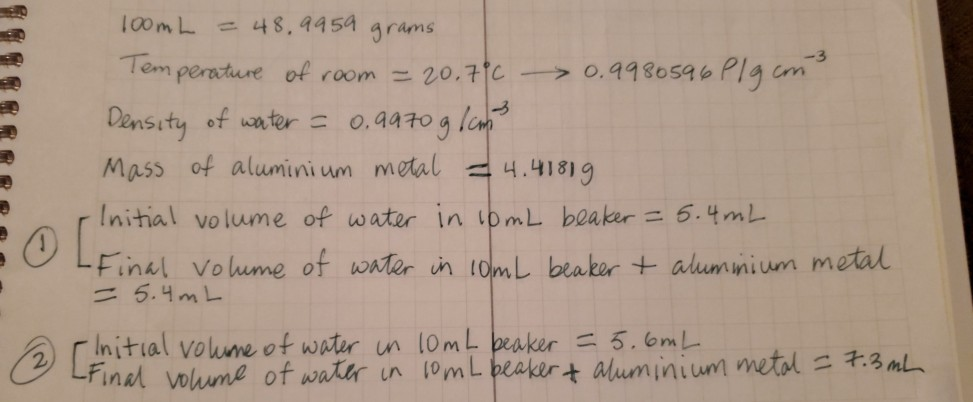 100mL = 48.9959 grams
Temperature of room = 20.7°C → 0.9980596 P/g cm⁻³
Density of water = 0.9970 g/cm⁻³
Mass of aluminium metal = 4.4181g
① [Initial volume of water in 10mL beaker = 5.4mL
Final volume of water in 10mL beaker + aluminium metal
= 5.4mL
② [Initial volume of water in 10mL beaker = 5.6mL
Final volume of water in 10mL beaker + aluminium metal = 7.3mL